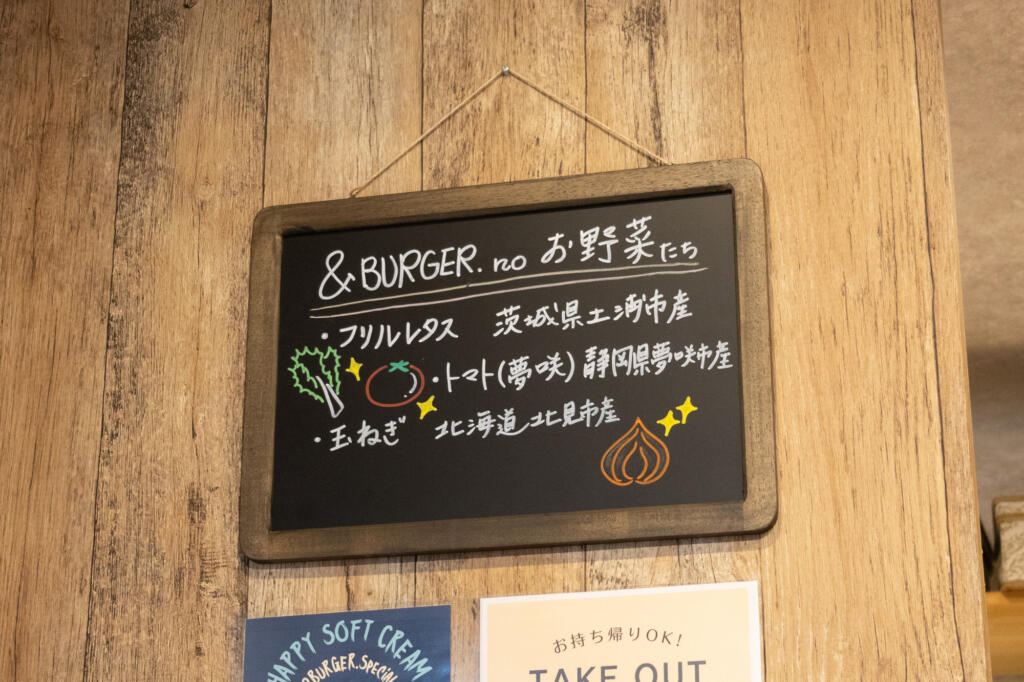 &BURGER. no お野菜たち
・フリルレタス 茨城県土浦市産
・トマト(夢咲) 静岡県夢咲市産
・玉ねぎ 北海道北見市産
HAPPY SOFT CREAM
BURGER.SPECIAL
お持ち帰りOK!
TAKE OUT